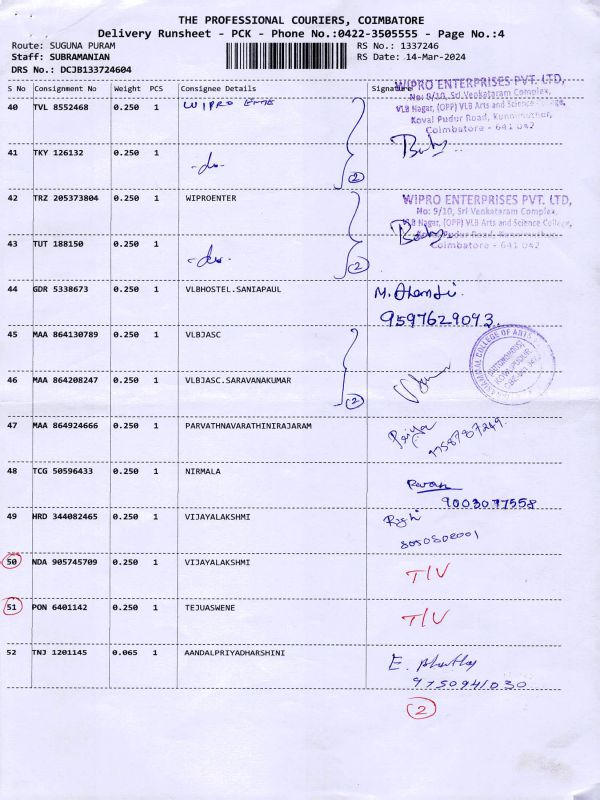 THE PROFESSIONAL COURIERS, COIMBATORE
Delivery Runsheet - PCK - Phone No.:0422-3505555 - Page No.:4
Route: SUGUNA PURAM RS No.: 1337246
Staff: SUBRAMANIAN RS Date: 14-Mar-2024
DRS No.: DCJB133724604
S No Consignment No Weight PCS Consignee Details Signature
WIPRO ENTERPRISES PVT. LTD,
No: 9/10, Sri Venkataram Complex,
VLB Nagar, (OPP) VLB Arts and Science College,
Kovai Pudur Road, Kuniamuthur,
Coimbatore - 641 042
40 TVL 8552468 0.250 1 WIPRO
41 TKY 126132 0.250 1 -do-
2
WIPRO ENTERPRISES PVT. LTD,
No: 9/10, Sri Venkataram Complex,
VLB Nagar, (OPP) VLB Arts and Science College,
Kovai Pudur Road, Kuniamuthur,
Coimbatore - 641 042
42 TRZ 205373804 0.250 1 WIPROENTER
43 TUT 188150 0.250 1 -do-
2
44 GDR 5338673 0.250 1 VLBHOSTEL.SANIAPAUL
9597629093
45 MAA 864130789 0.250 1 VLBJASC
46 MAA 864208247 0.250 1 VLBJASC.SARAVANAKUMAR
2
47 MAA 864924666 0.250 1 PARVATHNAVARATHINIRAJARAM Priya
48 TCG 50596433 0.250 1 NIRMALA
9003077558
49 HRD 344082465 0.250 1 VIJAYALAKSHMI
50 NDA 905745709 0.250 1 VIJAYALAKSHMI T/V
51 PON 6401142 0.250 1 TEJUASWENE T/V
52 TNJ 1201145 0.065 1 AANDALPRIYADHARSHINI
9750941030
2